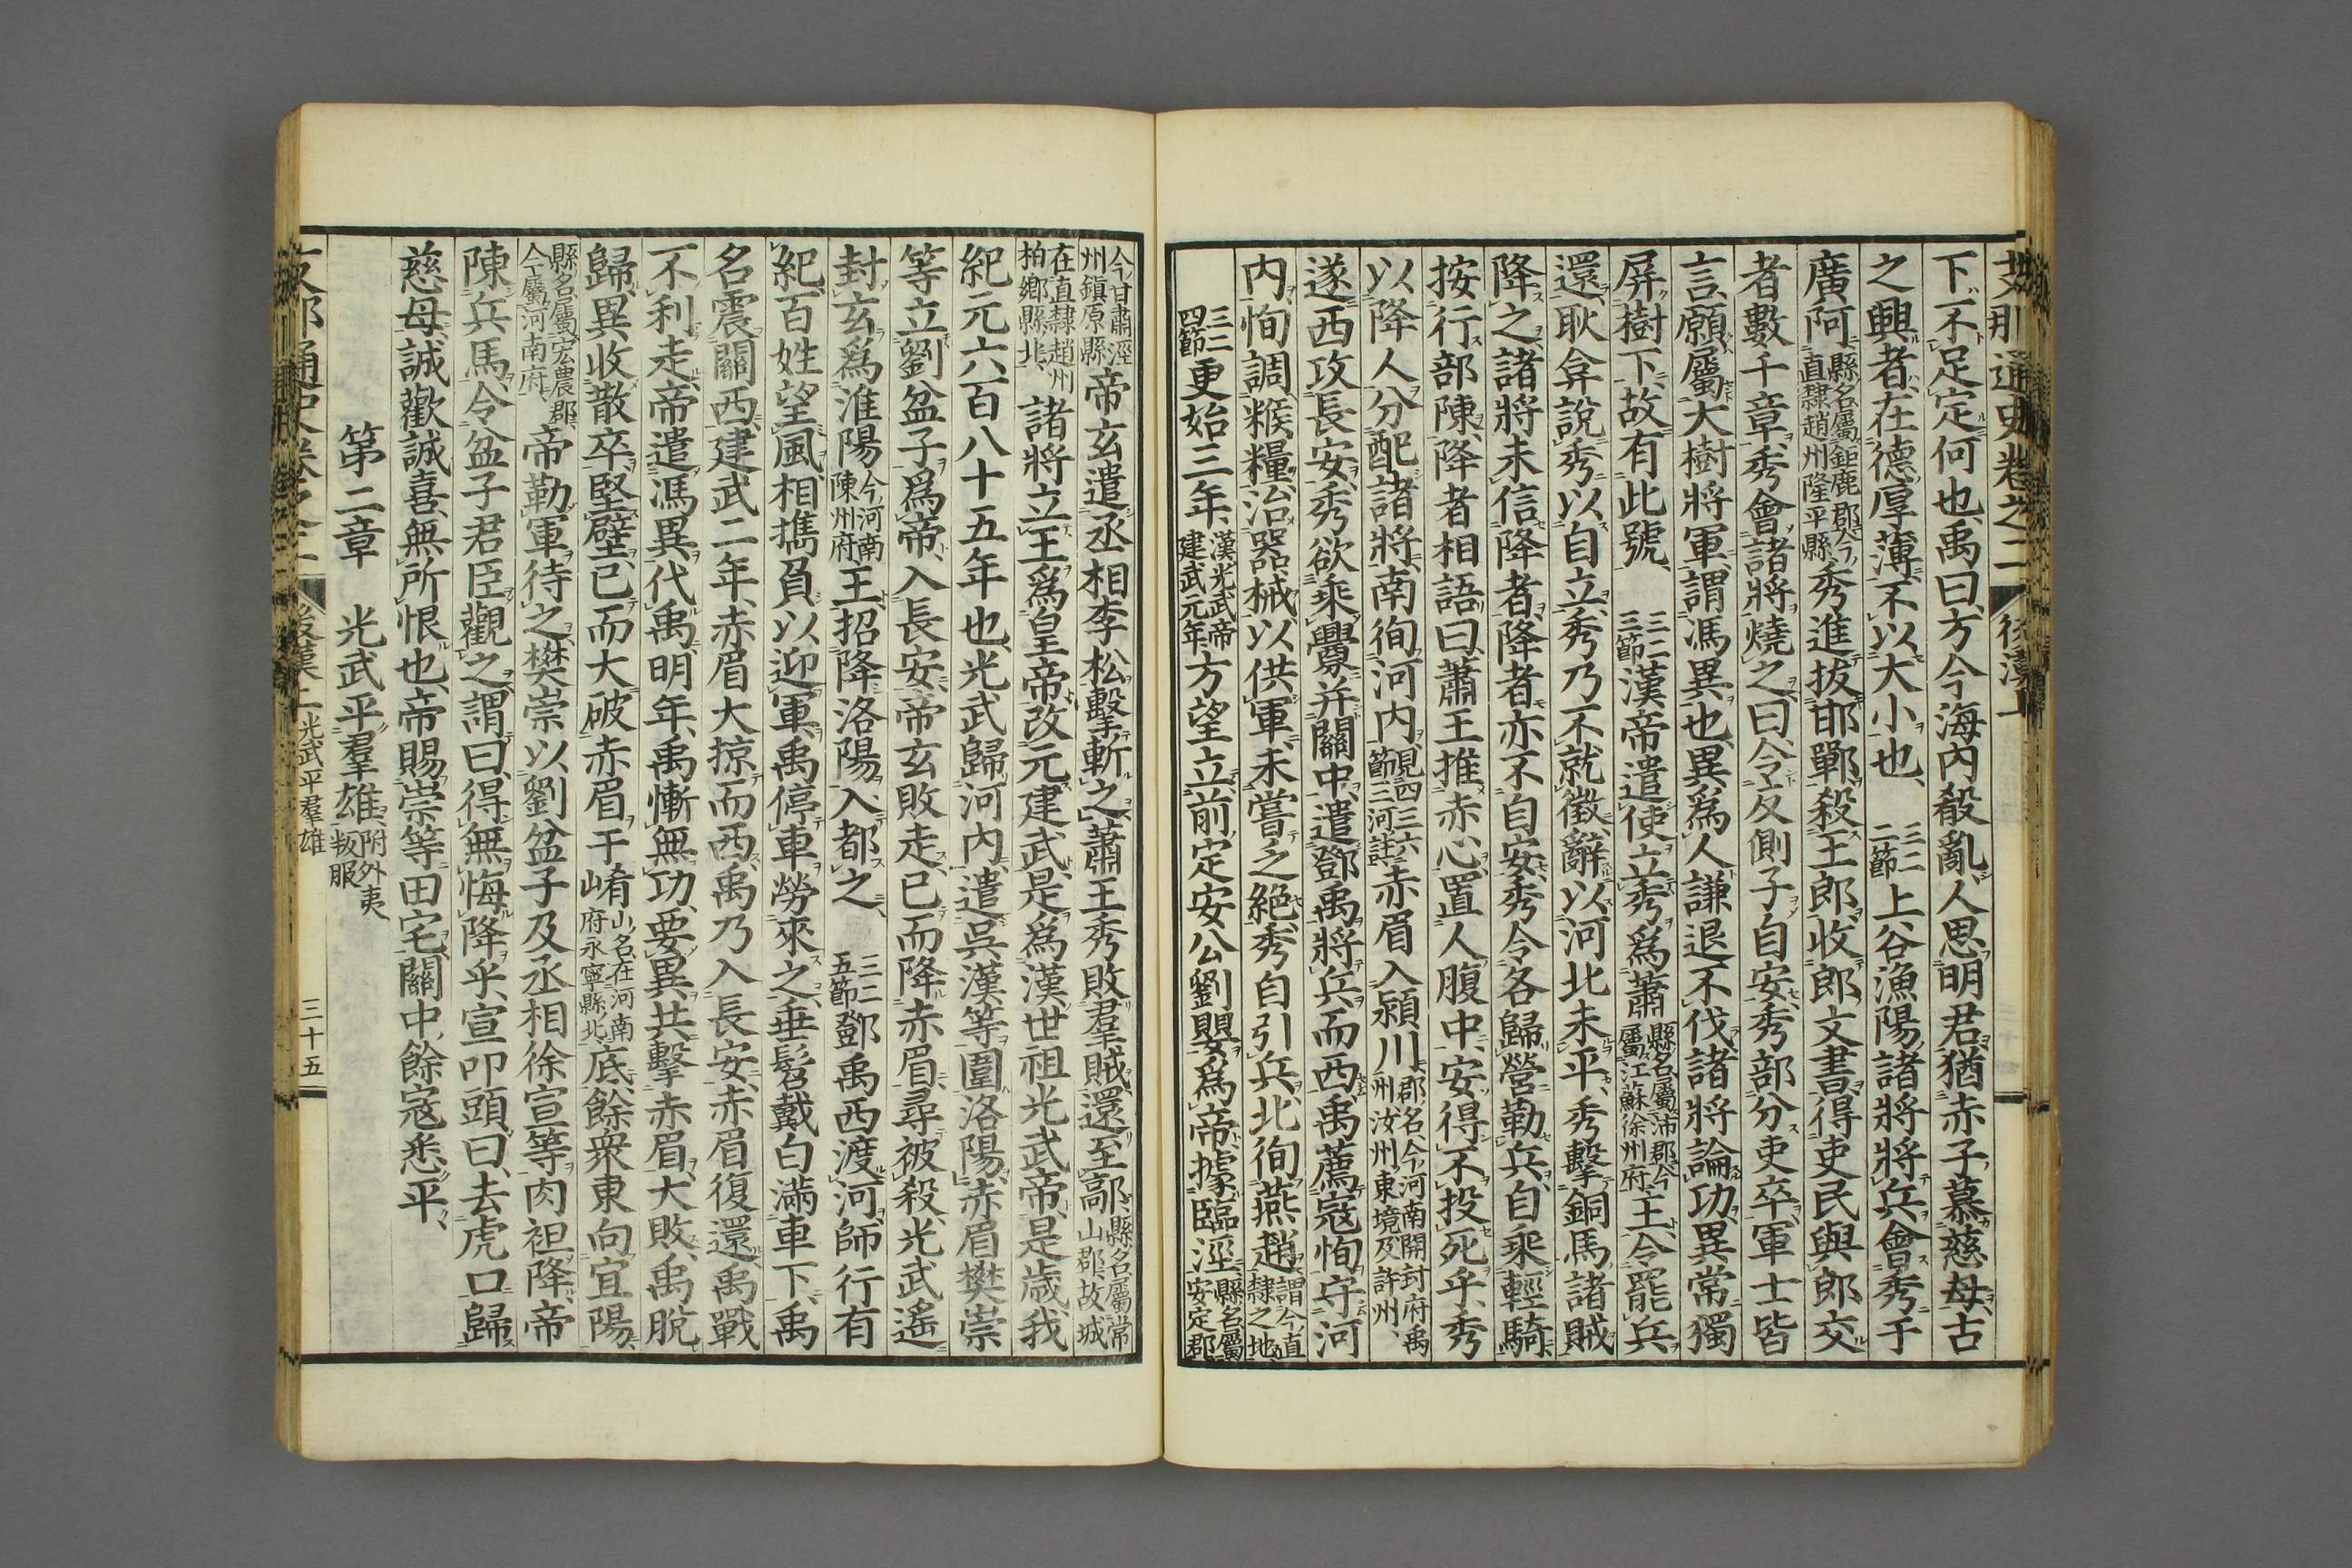 支那通史卷之二 後漢上
下不足定何也、禹曰、方今海內殽亂、人思明君、猶赤子慕慈母、古
之興者、在德厚薄、不以大小也、 三二二節 上谷漁陽諸將將兵、會秀于
廣阿 縣名屬鉅鹿郡今直隸趙州隆平縣 秀進拔邯鄲、殺王郎、收郎文書、得吏民與郎交
者數千章、秀會諸將燒之曰、令反側子自安、秀部分吏卒、軍士皆
言、願屬大樹將軍、謂馮異也、異爲人謙退不伐、諸將論功、異常獨
屏樹下、故有此號、 三二三節 漢帝遣使立秀爲蕭 縣名屬沛郡今屬江蘇徐州府 王、令罷兵
還、耿弇說秀以自立、秀乃不就徵、辭以河北未平、秀擊銅馬諸賊
降之、諸將未信降者、降者亦不自安、秀令各歸營勒兵、自乘輕騎
按行部陳、降者相語曰、蕭王推赤心、置人腹中、安得不投死乎、秀
以降人分配諸將、南徇河內 見四三六節三河註 赤眉入潁川 郡名、今河南開封府禹州汝州東境及許州、
遂西攻長安、秀欲乘釁并關中、遣鄧禹將兵而西、禹薦寇恂守河
內、恂調糇糧、治器械、以供軍、未嘗乏絕、秀自引兵、北徇燕趙 謂今直隸之地、
三二四節 更始三年、漢光武帝建武元年、方望立前定安公劉嬰爲帝、據臨涇 縣名屬安定郡
今甘肅涇州鎭原縣 帝玄遣丞相李松擊斬之、蕭王秀敗羣賊還至鄗、縣名屬常山郡、故城
在直隸趙州柏鄉縣北、 諸將立王爲皇帝、改元建武、是爲漢世祖光武帝、是歲我
紀元六百八十五年也、光武歸河內、遣吳漢等圍洛陽、赤眉樊崇
等立劉盆子爲帝、入長安、帝玄敗走、已而降赤眉、尋被殺、光武遙
封玄爲淮陽 今河南陳州府 王、招降洛陽、入都之、 三二五節 鄧禹西渡河、師行有
紀、百姓望風、相攜負以迎軍、禹停車勞來之、垂髫戴白滿車下、禹
名震關西、建武二年、赤眉大掠而西、禹乃入長安、赤眉復還、禹戰
不利走、帝遣馮異代禹、明年、禹慚無功、要異共擊赤眉、大敗、禹脫
歸、異收散卒、堅壁、已而大破赤眉于崤 山名在河南府永寧縣北 底、餘衆東向宜陽、
縣名屬宏農郡、今屬河南府、 帝勒軍待之、樊崇以劉盆子及丞相徐宣等、肉袒降、帝
陳兵馬、令盆子君臣觀之、謂曰、得無悔降乎、宣叩頭曰、去虎口歸
慈母、誠歡誠喜、無所恨也、帝賜崇等田宅、關中餘寇悉平、
第二章 光武平羣雄、附外夷叛服
支那通史卷之二 後漢上 光武平羣雄 三十五